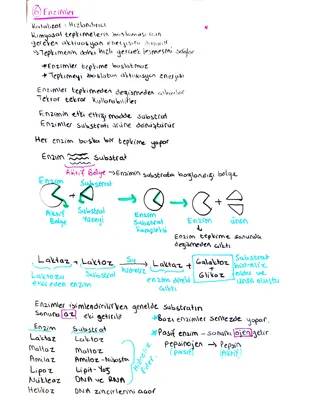 ⑥ Enzimler
Katalizör: Hızlandırıcı
Kimyasal tepkimelerin başlaması için
gereken aktivasyon enerjisini
→ Tepkimenin daha hızlı gerçekleşmesini sağlar
*Enzimler tepkime başlatmaz
*Tepkimeyi başlatan aktivasyon enerjisi
Enzimler tepkimeden değişmeden çıkarlar
Tekrar tekrar kullanabilirler
Enzimin etki ettiği madde substrat
Enzimler substratı ürüne dönüştürür
Her enzim başka bir tepkime yapar
Enzim Substrat
Aktif Bölge → Enzimin substrata bağlandığı bölge
Enzim Substrat
+ → → +
Aktif Bölge Substrat Yarığı Enzim Substrat kompleksi Enzim ürün
Enzim tepkime sonunda
değişmeden çıktı
Laktaz + Laktoz Su hidroliz Laktaz + Galaktoz + Glikoz
Laktoza etki eden enzim Substrat enzim çıktı
Substrat
hidroliz
oldu ve
ürün oluştu
Enzimler isimlendirilirken genelde substratın
Sonuna az eki getirilir
*Bazı enzimler sentezde yapar.
Enzim Substrat
*Pasif enzim - sonuna ojen gelir
Laktaz Laktoz
pepsinojen → Pepsin
(pasif) (Aktif)
Maltaz Maltoz
Amilaz Amiloz-nişasta
Lipaz Lipit-Yağ
Nükleaz DNA ve RNA
Helikaz DNA zincirlerini açar
Hidroliz Eder